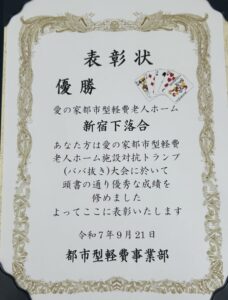 表彰状
優勝
愛の家都市型軽費老人ホーム
新宿下落合
あなた方は愛の家都市型軽費
老人ホーム施設対抗トランプ
(ババ抜き)大会に於いて
頭書の通り優秀な成績を
修めました
よってここに表彰いたします
令和7年9月21日
都市型軽費事業部